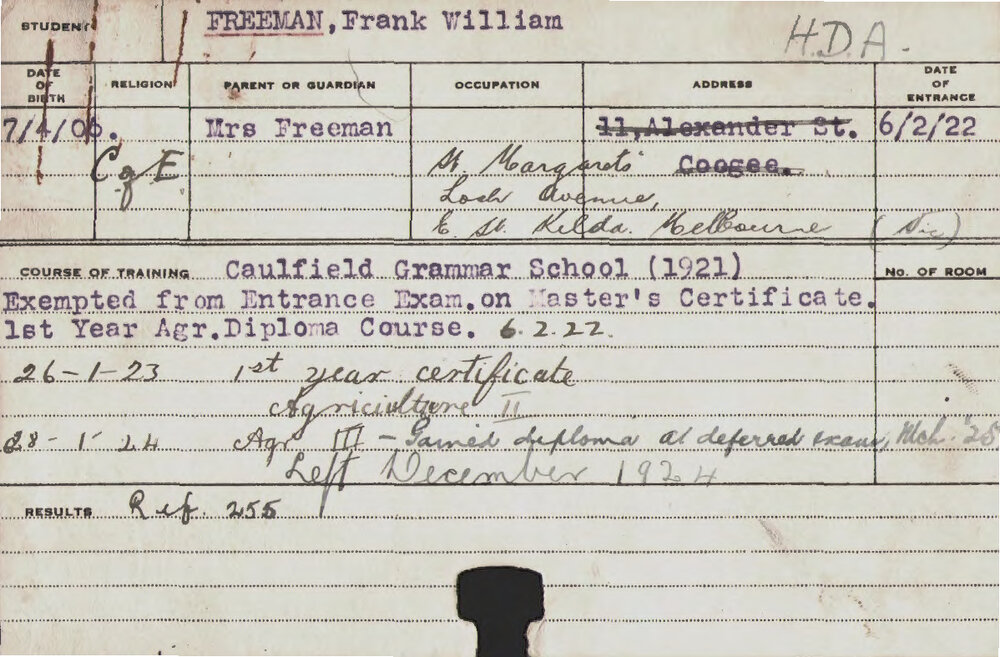 STUDENT FREEMAN, Frank William H.D.A.
DATE OF BIRTH RELIGION PARENT OR GUARDIAN OCCUPATION ADDRESS DATE OF ENTRANCE
7/4/05. Mrs Freeman 11, Alexander St. 6/2/22
C of E St. Margarets Coogee.
Loch Avenue,
E. St. Kilda. Melbourne (Vic)
COURSE OF TRAINING Caulfield Grammar School (1921) NO. OF ROOM
Exempted from Entrance Exam. on Master's Certificate.
1st Year Agr. Diploma Course. 6.2.22.
26-1-23 1st year certificate
Agriculture II
28-1-24 Agr III - Gained diploma at deferred exam, Mch. '25
Left December 1924
RESULTS Ref. 255